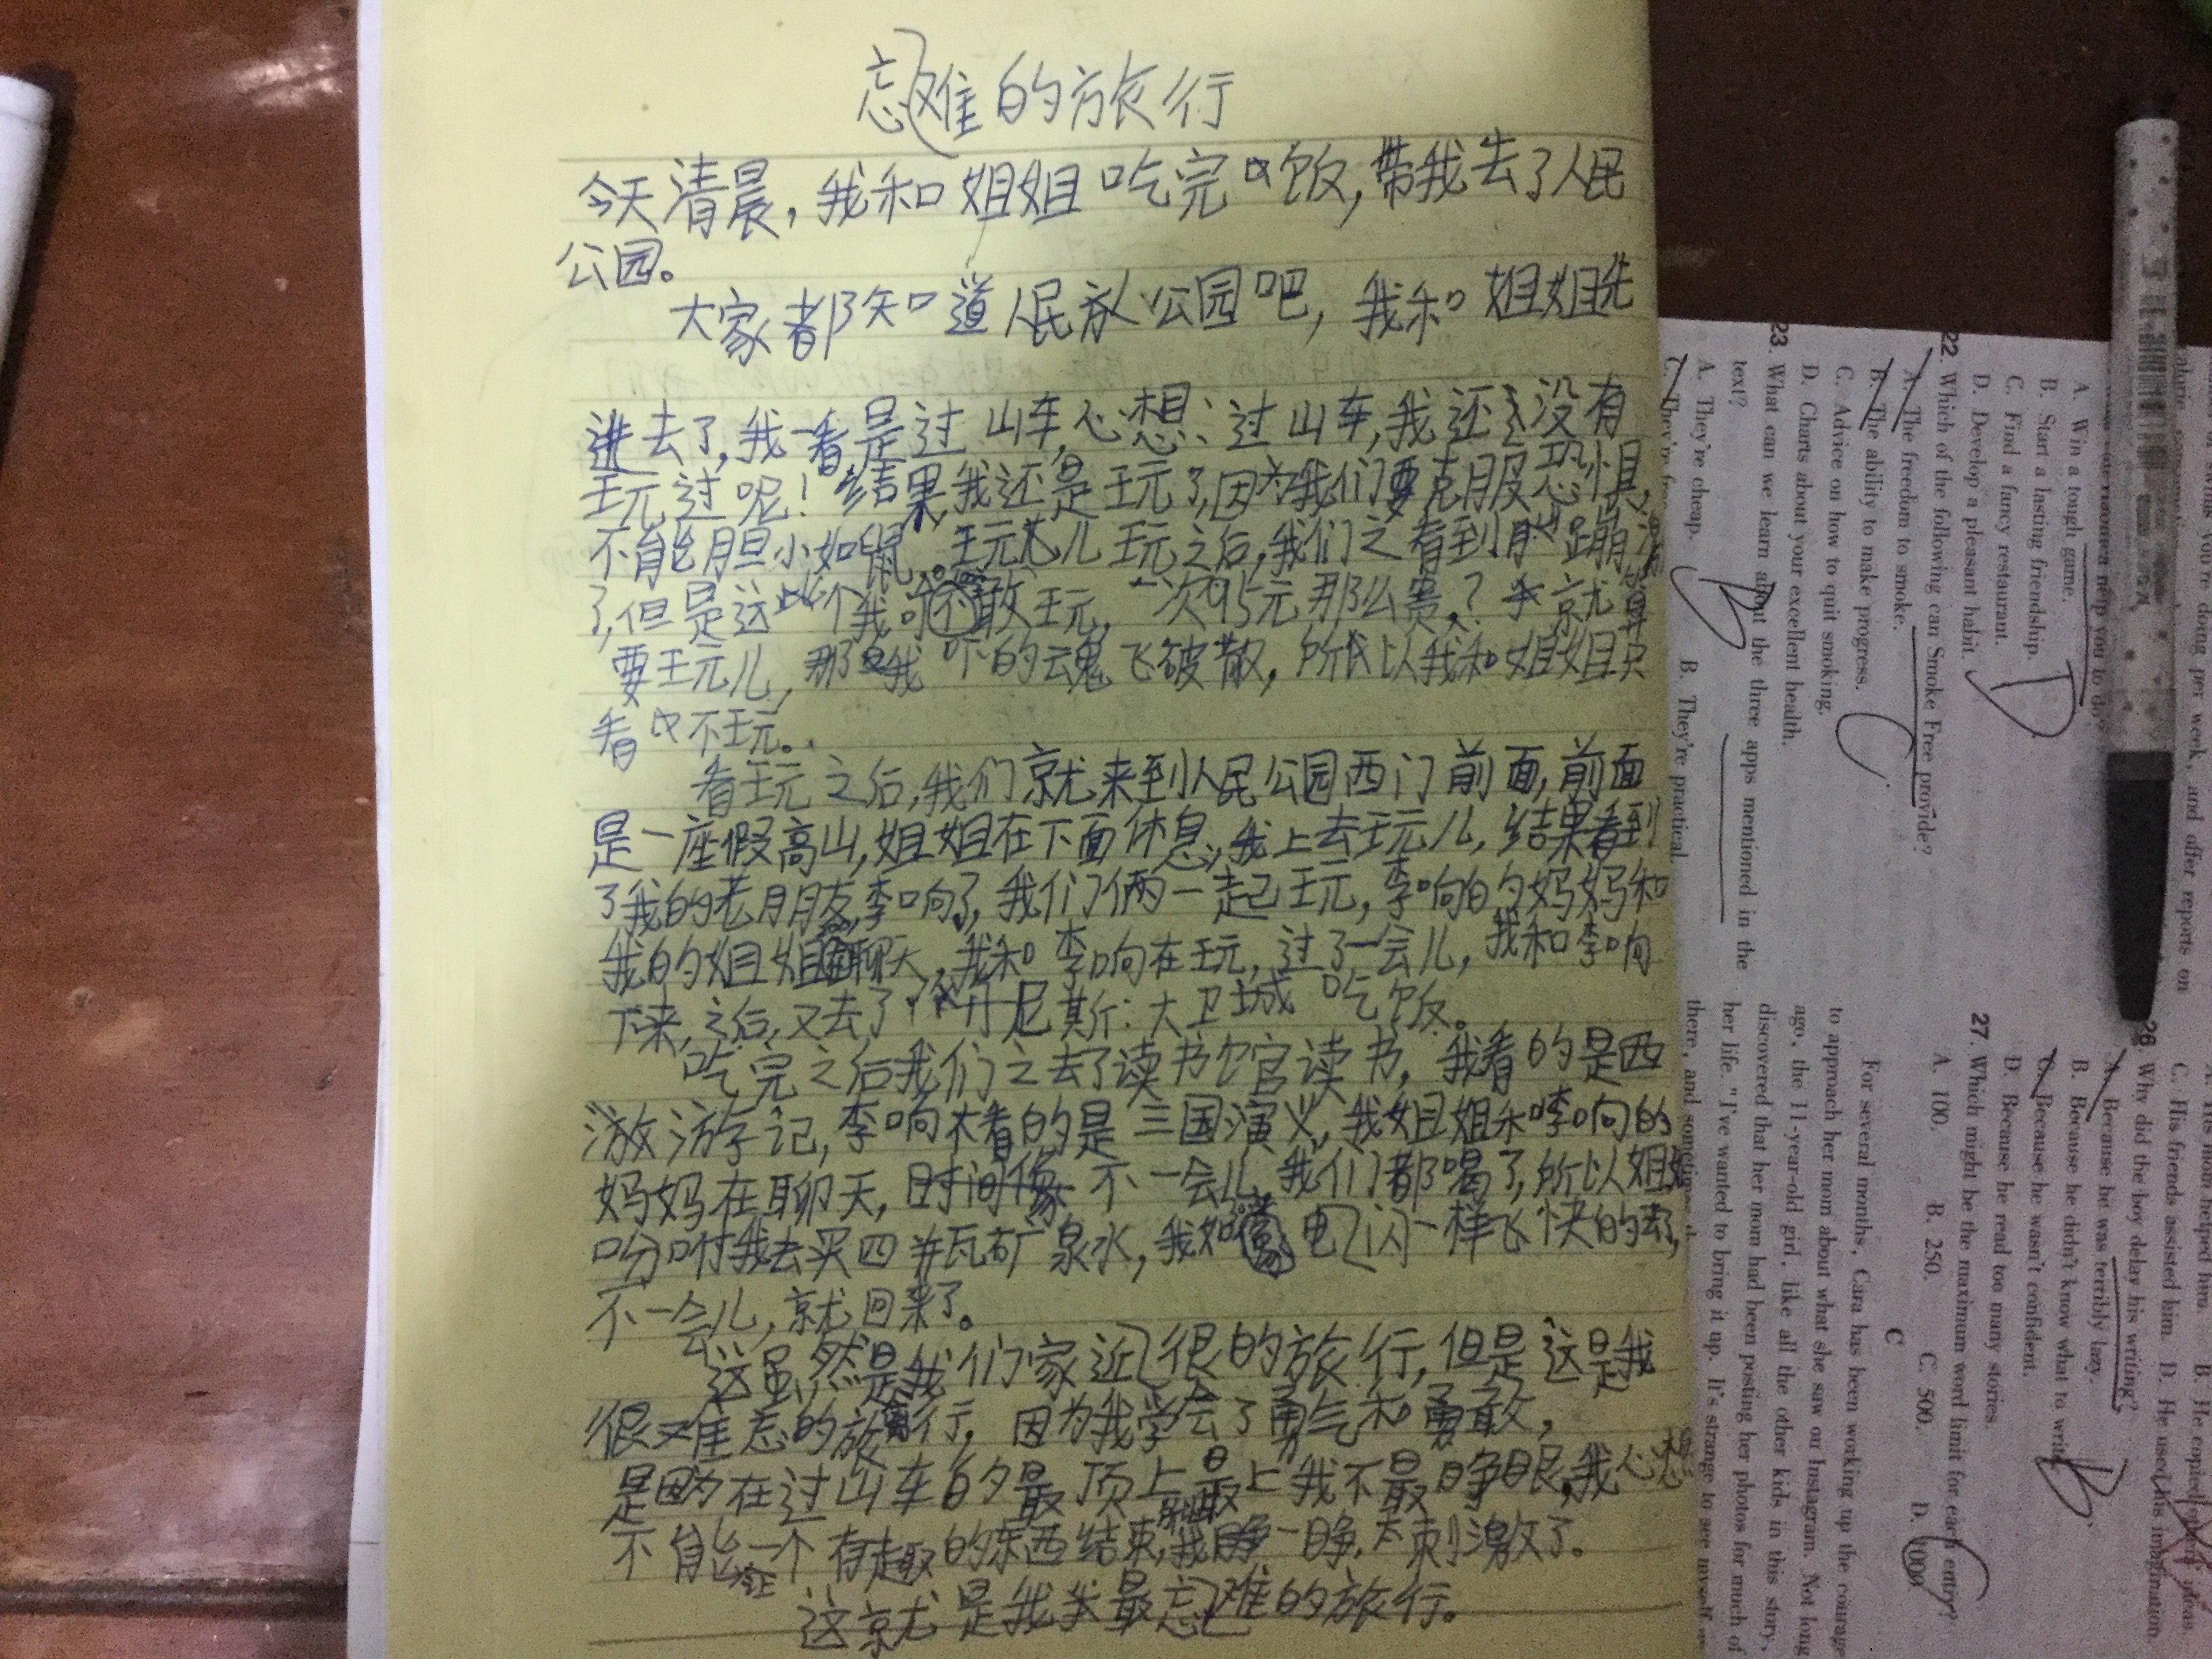 忘难的旅行
今天清晨，我和姐姐吃完饭，带我去了人民
公园。
大家都知道人民公园吧，我和姐姐先
进去了，我一看是过山车，心想：过山车，我还没有
玩过呢！结果，我还是玩了，因为我们要克服恐惧，
不能胆小如鼠。玩儿玩之后，我们之看到月蹦
了，但是这个我可不敢玩，一次95元那么贵？我就算
要玩儿，那我吓的魂飞破散，所以我和姐姐只
看不玩。
看玩之后，我们就来到人民公园西门前面，前面
是一座假高山，姐姐在下面休息，我上去玩儿，结果看到
了我的老朋友，李响了，我们俩一起玩，李响的妈妈和
我的姐姐在聊天，我和李响在玩，过了一会儿，我和李响
下来，之后，又去了丹尼斯：大卫城吃饭。
吃完之后我们之去了读书馆读书，我看的是西
游记，李响看的是三国演义，我姐姐和李响的
妈妈在聊天，时间像不一会儿，我们都喝了，所以姐姐
吩咐我去买四瓶矿泉水，我如电闪一样飞快的去了，
不一会儿，就回来了。
这虽然是我们家近很的旅行，但是这是我
很难忘的旅行，因为我学会了勇气和勇敢，
是因为在过山车的最顶上最上我不最睁眼，我心想
不能一个有趣的东西结束，我睁一睁，太刺激了。
这就是我最忘难的旅行。
A. Win a tough game.
B. Start a lasting friendship.
C. Find a fancy restaurant.
D. Develop a pleasant habit.
22. Which of the following can Smoke Free provide?
A. The freedom to smoke.
B. The ability to make progress.
C. Advice on how to quit smoking.
D. Charts about your excellent health.
23. What can we learn about the three apps mentioned in the
text?
A. They're cheap. B. They're practical.
C. They're
C. His friends assisted him. D. He used his imagination.
26. Why did the boy delay his writing?
A. Because he was terribly lazy.
B. Because he didn't know what to write.
C. Because he wasn't confident.
D. Because he read too many stories.
27. Which might be the maximum word limit for each entry?
A. 100. B. 250. C. 500. D. 1000.
C
For several months, Cara has been working up the courage
to approach her mom about what she saw on Instagram. Not long
ago, the 11-year-old girl, like all the other kids in this story,
discovered that her mom had been posting her photos for much of
her life. "I've wanted to bring it up. It's strange to see myself
there, and sometimes